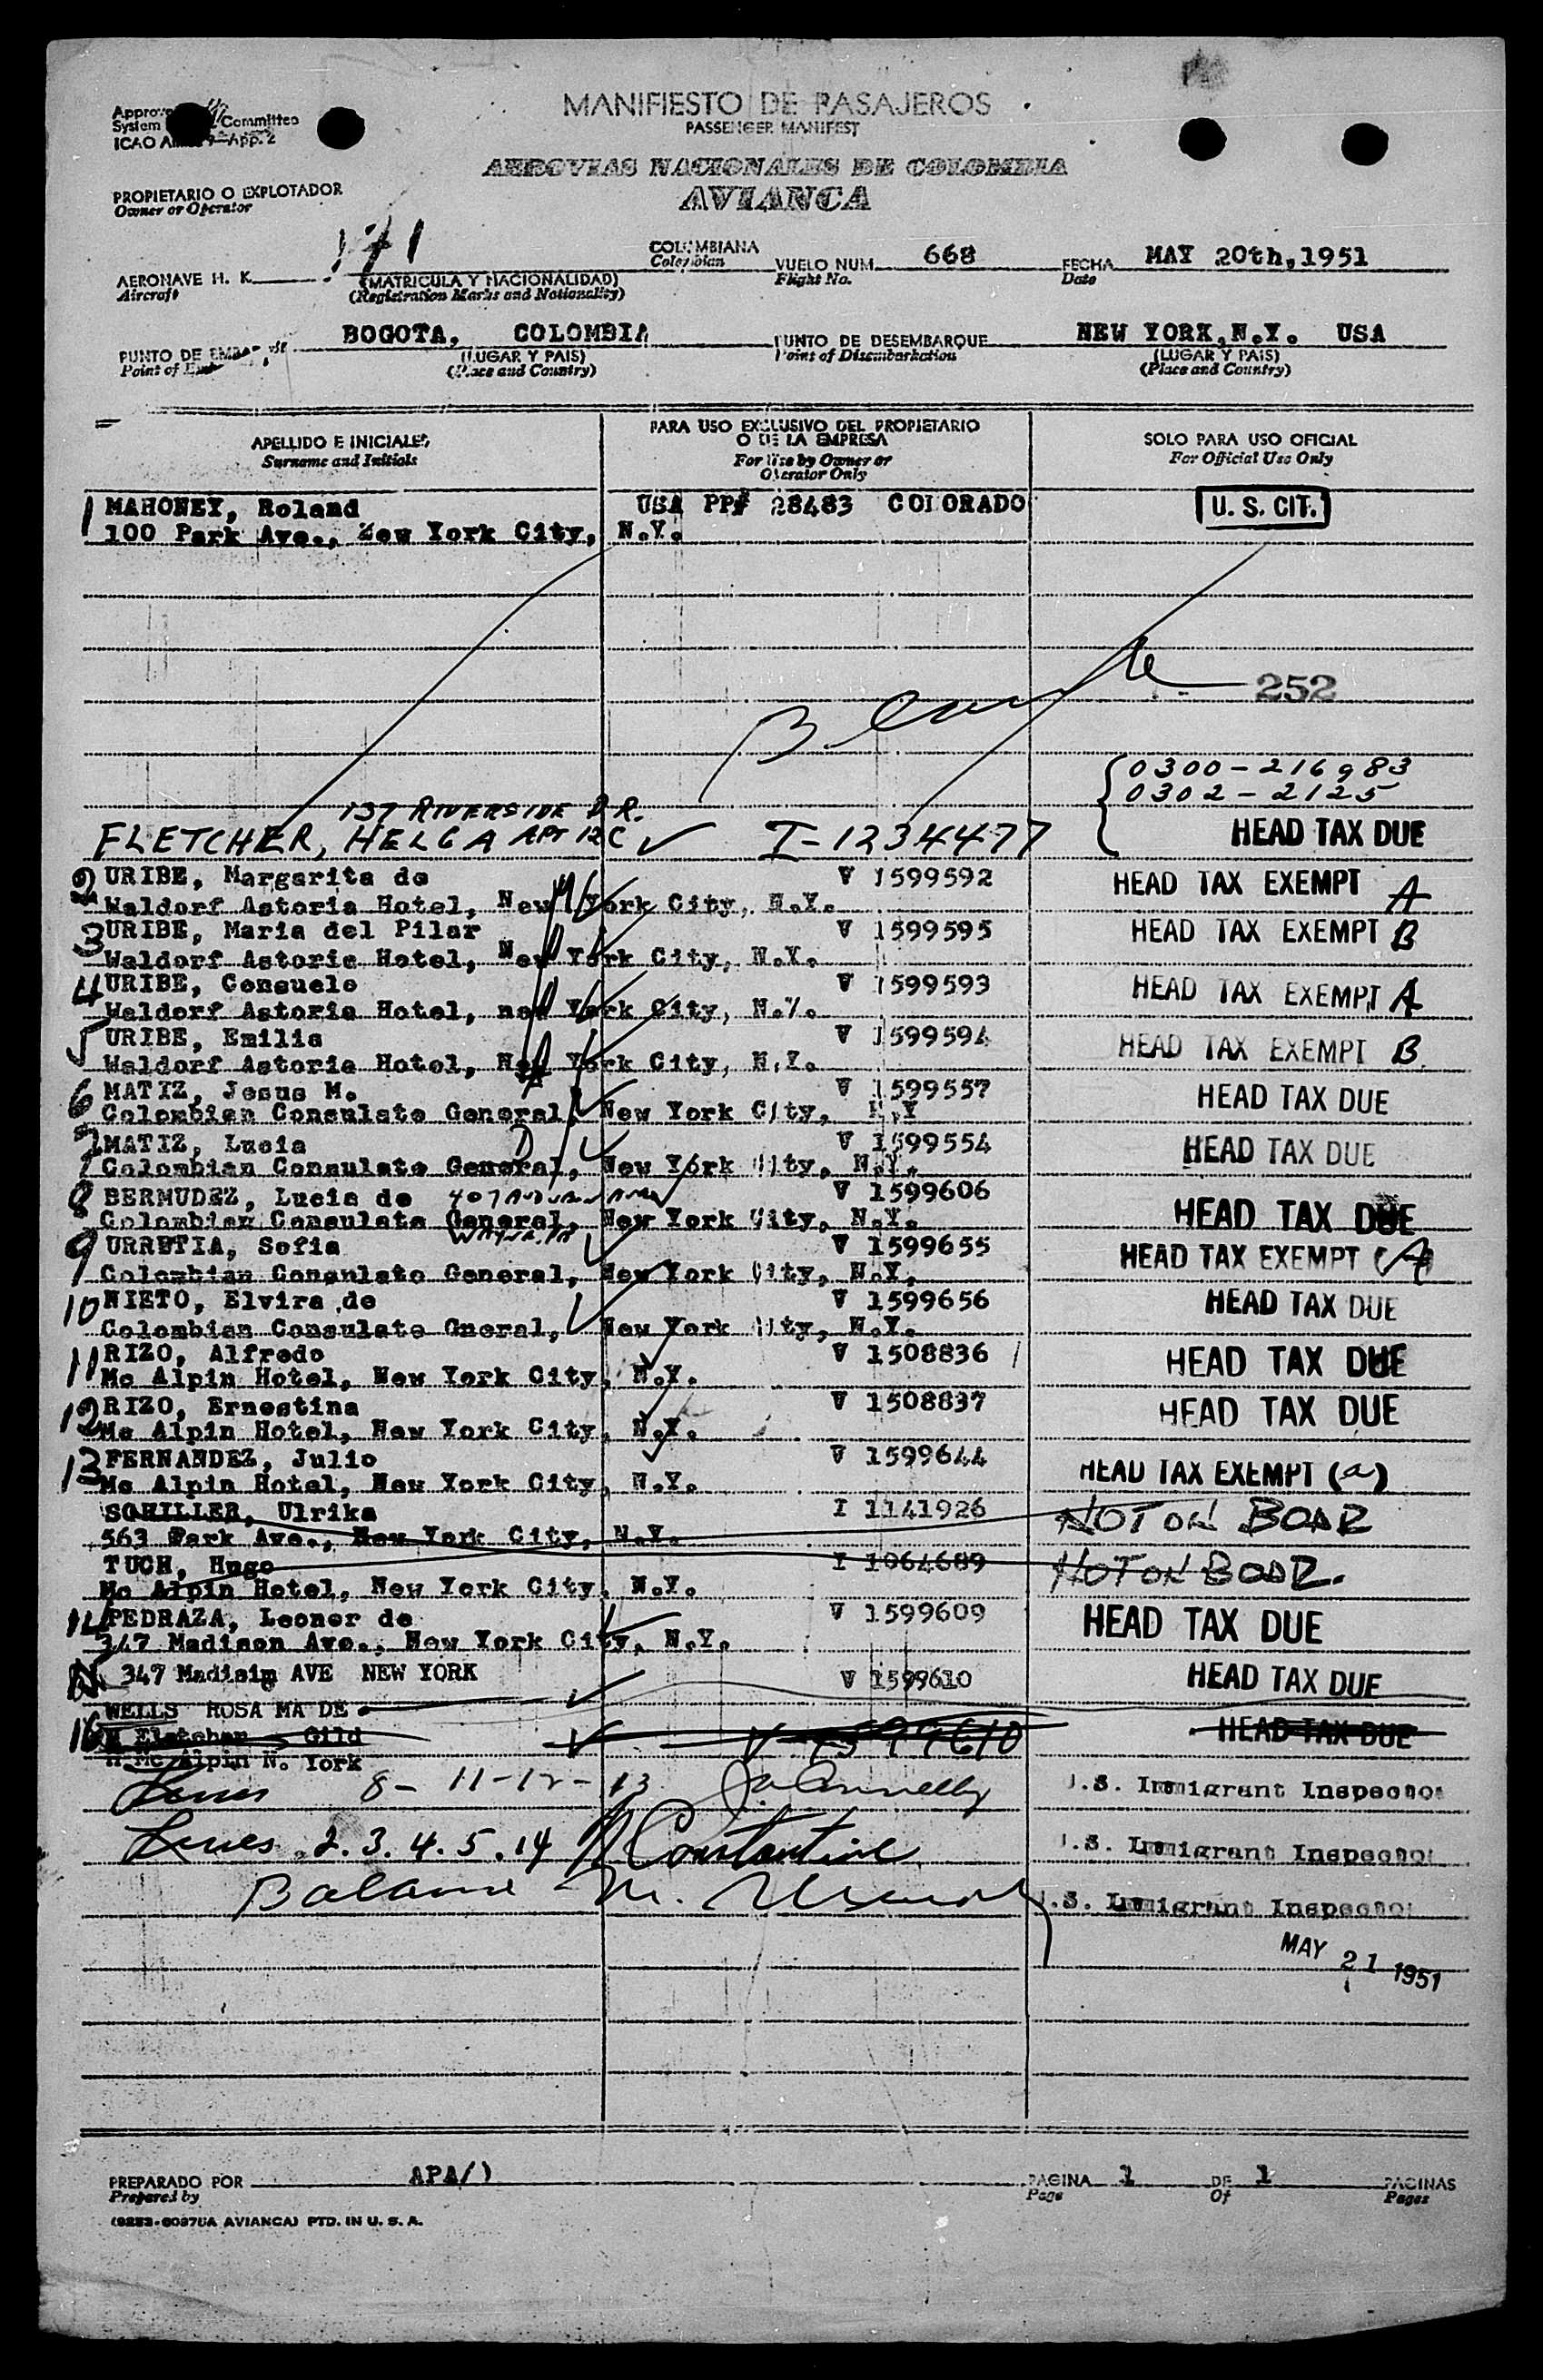 MANIFIESTO DE PASAJEROS
PASSENGER MANIFEST
Committee
System
ICAO App. 2
AEROVIAS NACIONALES DE COLOMBIA
AVIANCA
PROPIETARIO O EXPLOTADOR
Owner or Operator
171
AERONAVE H. K.
Aircraft
(MATRICULA Y NACIONALIDAD)
(Registration Marks and Nationality)
COLOMBIANA
Colombian
VUELO NUM. 668
Flight No.
FECHA MAY 20th, 1951
Date
PUNTO DE BOGOTA, COLOMBIA
Point of
(LUGAR Y PAIS)
(Place and Country)
PUNTO DE DESEMBARQUE NEW YORK, N.Y. USA
Point of Disembarkation
(LUGAR Y PAIS)
(Place and Country)
APELLIDO E INICIALES
Surname and Initials
PARA USO EXCLUSIVO DEL PROPIETARIO
O DE LA EMPRESA
For Use by Owner or
Operator Only
SOLO PARA USO OFICIAL
For Official Use Only
1 MAHONEY, Roland USA PP# 28483 COLORADO U. S. CIT.
100 Park Ave., New York City, N.Y.
252
0300-216983
137 RIVERSIDE DR. 0302-2125
FLETCHER, HELGA APT 12C I-1234477 HEAD TAX DUE
2 URIBE, Margarita de V 1599592 HEAD TAX EXEMPT A
Waldorf Astoria Hotel, New York City, N.Y.
3 URIBE, Maria del Pilar V 1599595 HEAD TAX EXEMPT B
Waldorf Astoria Hotel, New York City, N.Y.
4 URIBE, Consuelo V 1599593 HEAD TAX EXEMPT A
Waldorf Astoria Hotel, new York City, N.Y.
5 URIBE, Emilia V 1599594 HEAD TAX EXEMPT B
Waldorf Astoria Hotel, New York City, N.Y.
6 MATIZ, Jesus M. V 1599557 HEAD TAX DUE
Colombian Consulate General, New York City, N.Y
7 MATIZ, Lucia V 1599554 HEAD TAX DUE
Colombian Consulate General, New York City, N.Y.
8 BERMUDEZ, Lucia de V 1599606 HEAD TAX DUE
Colombian Consulate General, New York City, N.Y.
9 URRUTIA, Sofia V 1599655 HEAD TAX EXEMPT (A)
Colombian Consulate General, New York City, N.Y.
10 NIETO, Elvira de V 1599656 HEAD TAX DUE
Colombian Consulate Gneral, New York City, N.Y.
11 RIZO, Alfredo V 1508836 HEAD TAX DUE
Mc Alpin Hotel, New York City, N.Y.
12 RIZO, Ernestina V 1508837 HEAD TAX DUE
Mc Alpin Hotel, New York City, N.Y.
13 FERNANDEZ, Julio V 1599644 HEAD TAX EXEMPT (a)
Mc Alpin Hotel, New York City, N.Y.
SCHILLER, Ulrika I 1141926 NOT ON BOAR
563 Park Ave., New York City, N.Y.
TUCH, Hugo I 1064689 NOT ON BOAR.
Mc Alpin Hotel, New York City, N.Y.
14 PEDRAZA, Leonor de V 1599609 HEAD TAX DUE
347 Madison Ave., New York City, N.Y.
347 Madisim AVE NEW YORK V 1599610 HEAD TAX DUE
WELLS ROSA MA DE
16 Fletcher Gild V 1599610 HEAD TAX DUE
H Mc Alpin N. York
Lines 8-11-12-13 U.S. Immigrant Inspector
Lines 2.3.4.5.14 Constantine U.S. Immigrant Inspector
Balance M. U.S. Immigrant Inspector
MAY 21 1951
PREPARADO POR
Prepared by
PAGINA 1 DE 1 PAGINAS
Page Of Pages
AVIANCA) PTD. IN U. S. A.